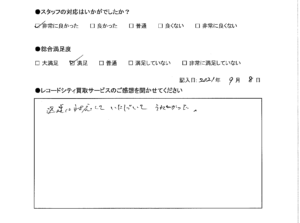 ●スタッフの対応はいかがでしたか？
☑非常に良かった □良かった □普通 □良くない □非常に良くない
●総合満足度
□大満足 ☑満足 □普通 □満足していない □非常に満足していない
記入日：2021年 9月 8日
●レコードシティ買取サービスのご感想を聞かせてください
迅速に対応して いただいて うれしかった。